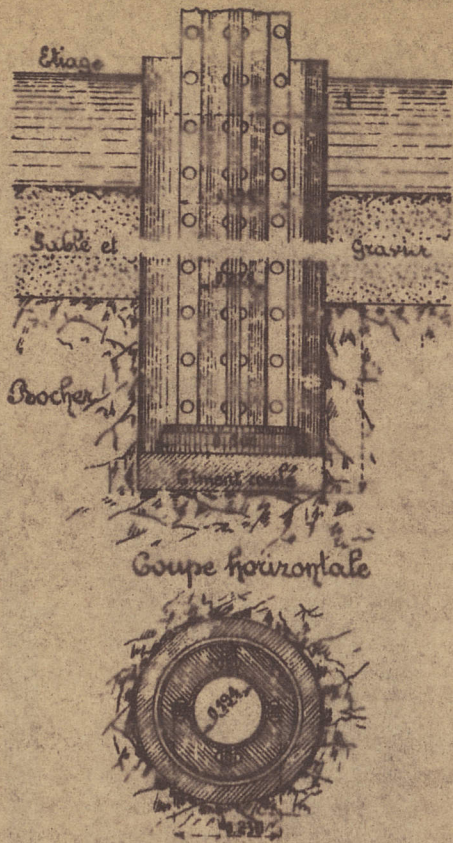 Etiage
Sable et Gravier
Rocher
Ciment coulé
Coupe horizontale
0.194